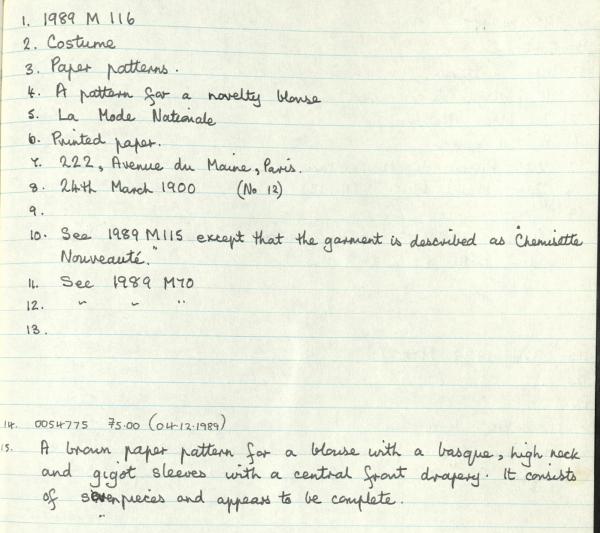 1. 1989 M 116
2. Costume
3. Paper patterns.
4. A pattern for a novelty blouse
5. La Mode Nationale
6. Printed paper.
7. 222, Avenue du Maine, Paris.
8. 24th March 1900 (No 12)
9.
10. See 1989 M115 except that the garment is described as "Chemisette
Nouveauté."
11. See 1989 M70
12. " " "
13.
14. 0054775 75.00 (04.12.1989)
15. A brown paper pattern for a blouse with a basque, high neck
and gigot sleeves with a central front drapery. It consists
of seven pieces and appears to be complete.